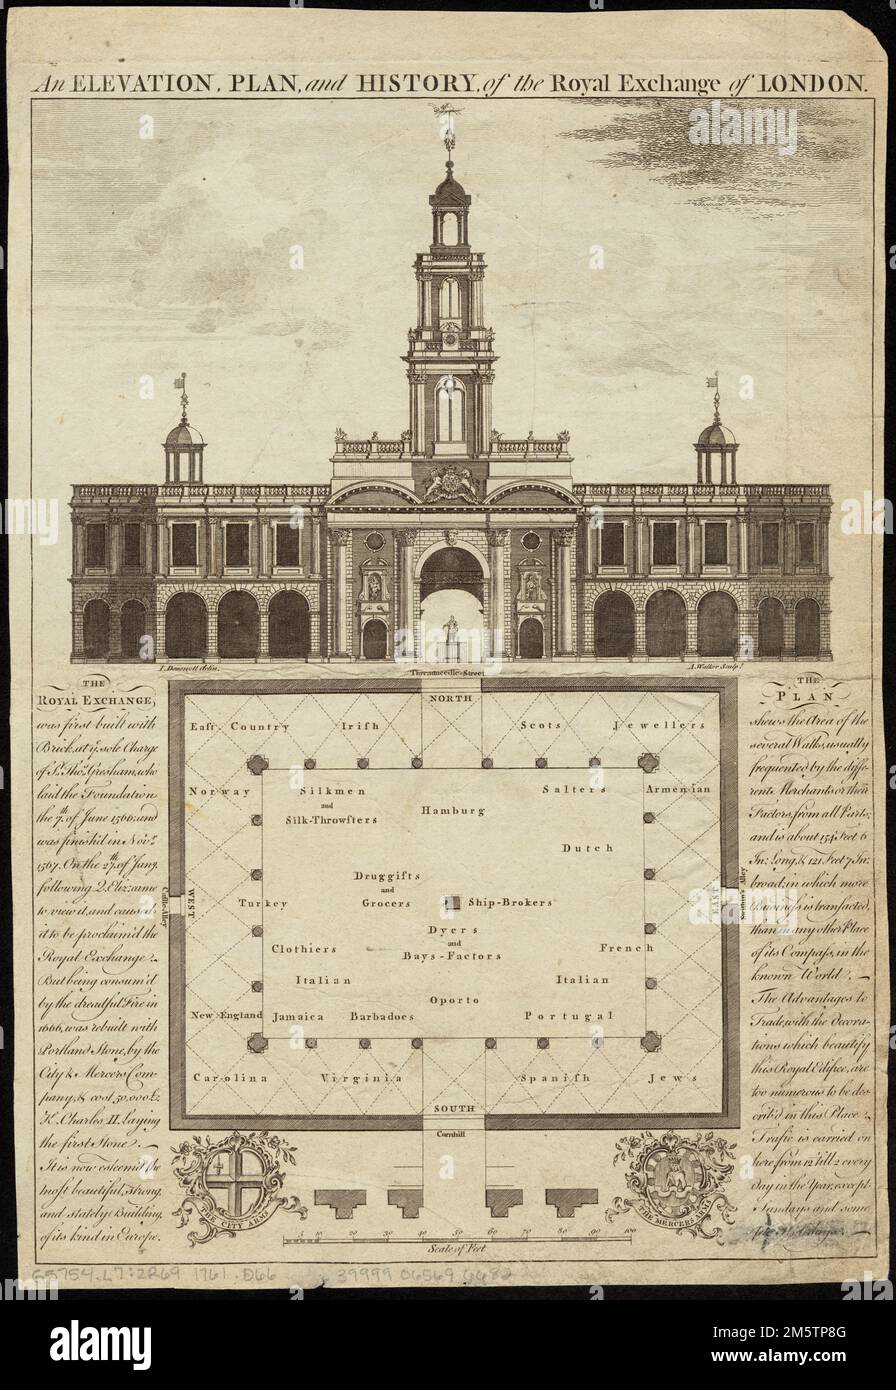 An ELEVATION, PLAN, and HISTORY, of the Royal Exchange of LONDON.
I. Donowell delin.
A. Walker Sculp.t
Threadneedle-Street
THE
ROYAL EXCHANGE,
was first built with
Brick, at y.e sole Charge
of S.r Tho.s Gresham, who
laid the Foundation
the 7.th of June 1566; and
was finish'd in Nov.r
1567. On the 27.th of Jan.y
following Q. Eliz: came
to view it, and caused
it to be proclaim'd the
Royal Exchange:
But being consum'd
by the dreadful Fire in
1666, was rebuilt with
Portland Stone, by the
City & Mercers Com-
pany, & cost 50,000£:
K. Charles II. Laying
the first Stone.
It is now esteem'd the
most beautiful, strong,
and stately Building,
of its kind in Europe.
NORTH
East-Country
Irish
Scots
Jewellers
Norway
Silkmen
and
Silk-Throwsters
Hamburg
Salters
Armenian
Dutch
Druggists
and
Grocers
Ship-Brokers
Turkey
WEST
Castle-Alley
EAST
Sweeting's Alley
Dyers
and
Bays-Factors
Clothiers
French
Italian
Italian
Oporto
New-England
Jamaica
Barbadoes
Portugal
Carolina
Virginia
Spanish
Jews
SOUTH
Cornhill
THE
PLAN
shews the Area of the
several Walks, usually
frequented by the diffe-
rent Merchants or their
Factors, from all Parts;
and is about 154 Feet 6
In: Long, & 121 Feet 7 In:
broad; in which more
Business is transacted,
than in any other Place
of its Compass, in the
known World.
The Advantages to
Trade, with the Decora-
tions which beautify
this Royal Edifice, are
too numerous to be des-
crib'd in this Place.
Trafic is carried on
here from 12 till 2 every
Day in the Year, except
Sundays and some
few Holidays.
THE CITY ARMS
THE MERCERS ARMS
10 20 30 40 50 60 70 80 90 100
Scale of Feet
G5754.L7:2R69 1761 .D66
39999 06569 6682
alamy
alamy
Image ID: 2M5TP8G
www.alamy.com